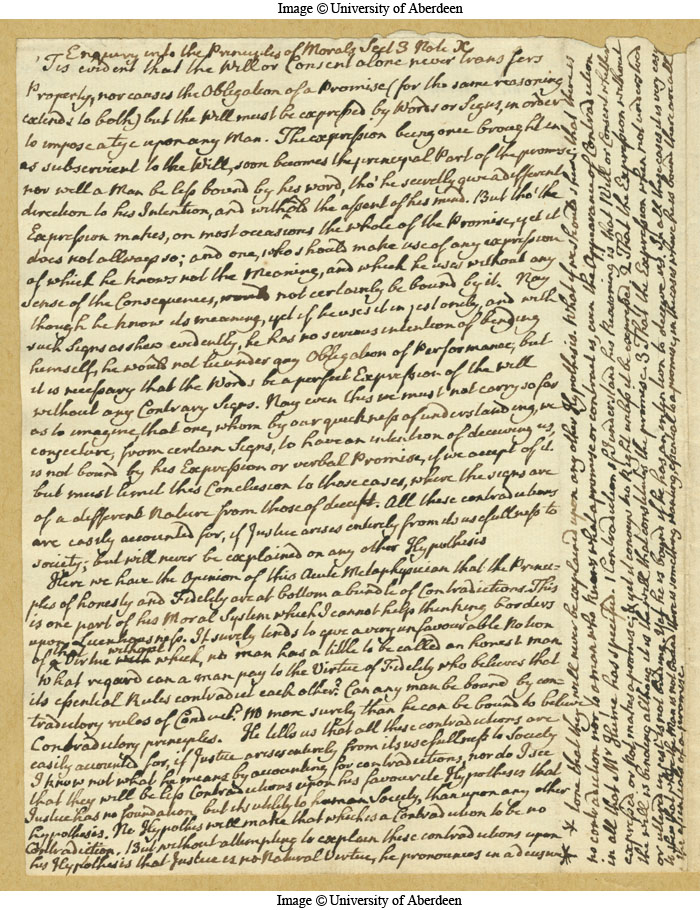 Image © University of Aberdeen
Enquiry into the Principles of Morals Sect 3 Note X
Tis evident that the Will or Consent alone never transfers
Property, nor causes the Obligation of a Promise (for the same reasoning
extends to both) but the Will must be expressed by Words or Signs, in order
to impose a tye upon any Man. The expression being once brought in
as subservient to the Will, soon becomes the principal Part of the promise
nor will a Man be less bound by his word, tho' he secretly give a different
direction to his Intention, and withhold the assent of his mind. But tho' the
Expression makes, on most occasions the whole of the Promise, yet it
does not allways so; and one, who should make use of any expression
of which he knows not the Meaning, and which he uses without any
Sense of the Consequences, would not certainly be bound by it. Nay
though he know its meaning, yet if he uses it in jest only, and with
such Signs as shew evidently, he has no serious intention of binding
himself, he would not lie under any Obligation of Performance; but
it is necessary that the Words be a perfect Expression of the will
without any Contrary Signs. Nay even this we must not carry so far
as to imagine that one, whom by our quickness of understanding, we
conjecture, from certain Signs, to have an intention of deceiving us,
is not bound by his Expression or verbal Promise, if we accept of it
but must limit this Conclusion to those cases, where the signs are
of a different Nature from those of deceit. All these contradictions
are easily accounted for, if Justice arises entirely from its usefulness to
society; but will never be explained on any other Hypothesis
Here we have the Opinion of this Acute Metaphysician that the Princi-
ples of honesty and Fidelity are at bottom a bundle of Contradictions. This
is one part of his Moral System which I cannot help thinking borders
upon Licentiousness. It surely tends to give a very unfavourable Notion
of that Virtue without which, no man has a title to be called an honest man
What regard can a man pay to the Virtue of Fidelity who believes that
its essential Rules contradict each other? Can any man be bound by con-
tradictory rules of Conduct? No more surely than he can be bound to believe
Contradictory principles. He tells us that all these contradictions are
easily accounted for, if Justice arises entirely from its usefullness to Society
I know not what he means by accounting for contradictions, nor do I see
that they will be less Contradictions upon his favourite Hypotheses that
Justice has no foundation but its utility to human Society, than upon any other
hypothesis. No Hypothesis will make that which is a Contradiction to be no
Contradiction. But without attempting to explain these contradictions upon
his Hypothesis that Justice is no Natural Virtue, he pronounces in a decisive
* tone that they will never be explained upon any other Hypothesis. What if we should shew that there is
no contradiction nor to a man who knows what a promise or contract is, even the Appearance of Contradiction
in all that Mr Hume has specified. 1 Contradiction if I understand his Reasoning is that Will or Consent whether
expressed or not, makes a promise; & yet it conveys no Right unless it be expressed 2 That the Expression without
the will is binding altho it is the will that constitutes the promise 3 That the Expression when not understood
or uttered in jest is not binding. Yet he is bound if he has an intention to deceive us. In all these cases it is very easy
the essentials of a promise
Image © University of Aberdeen